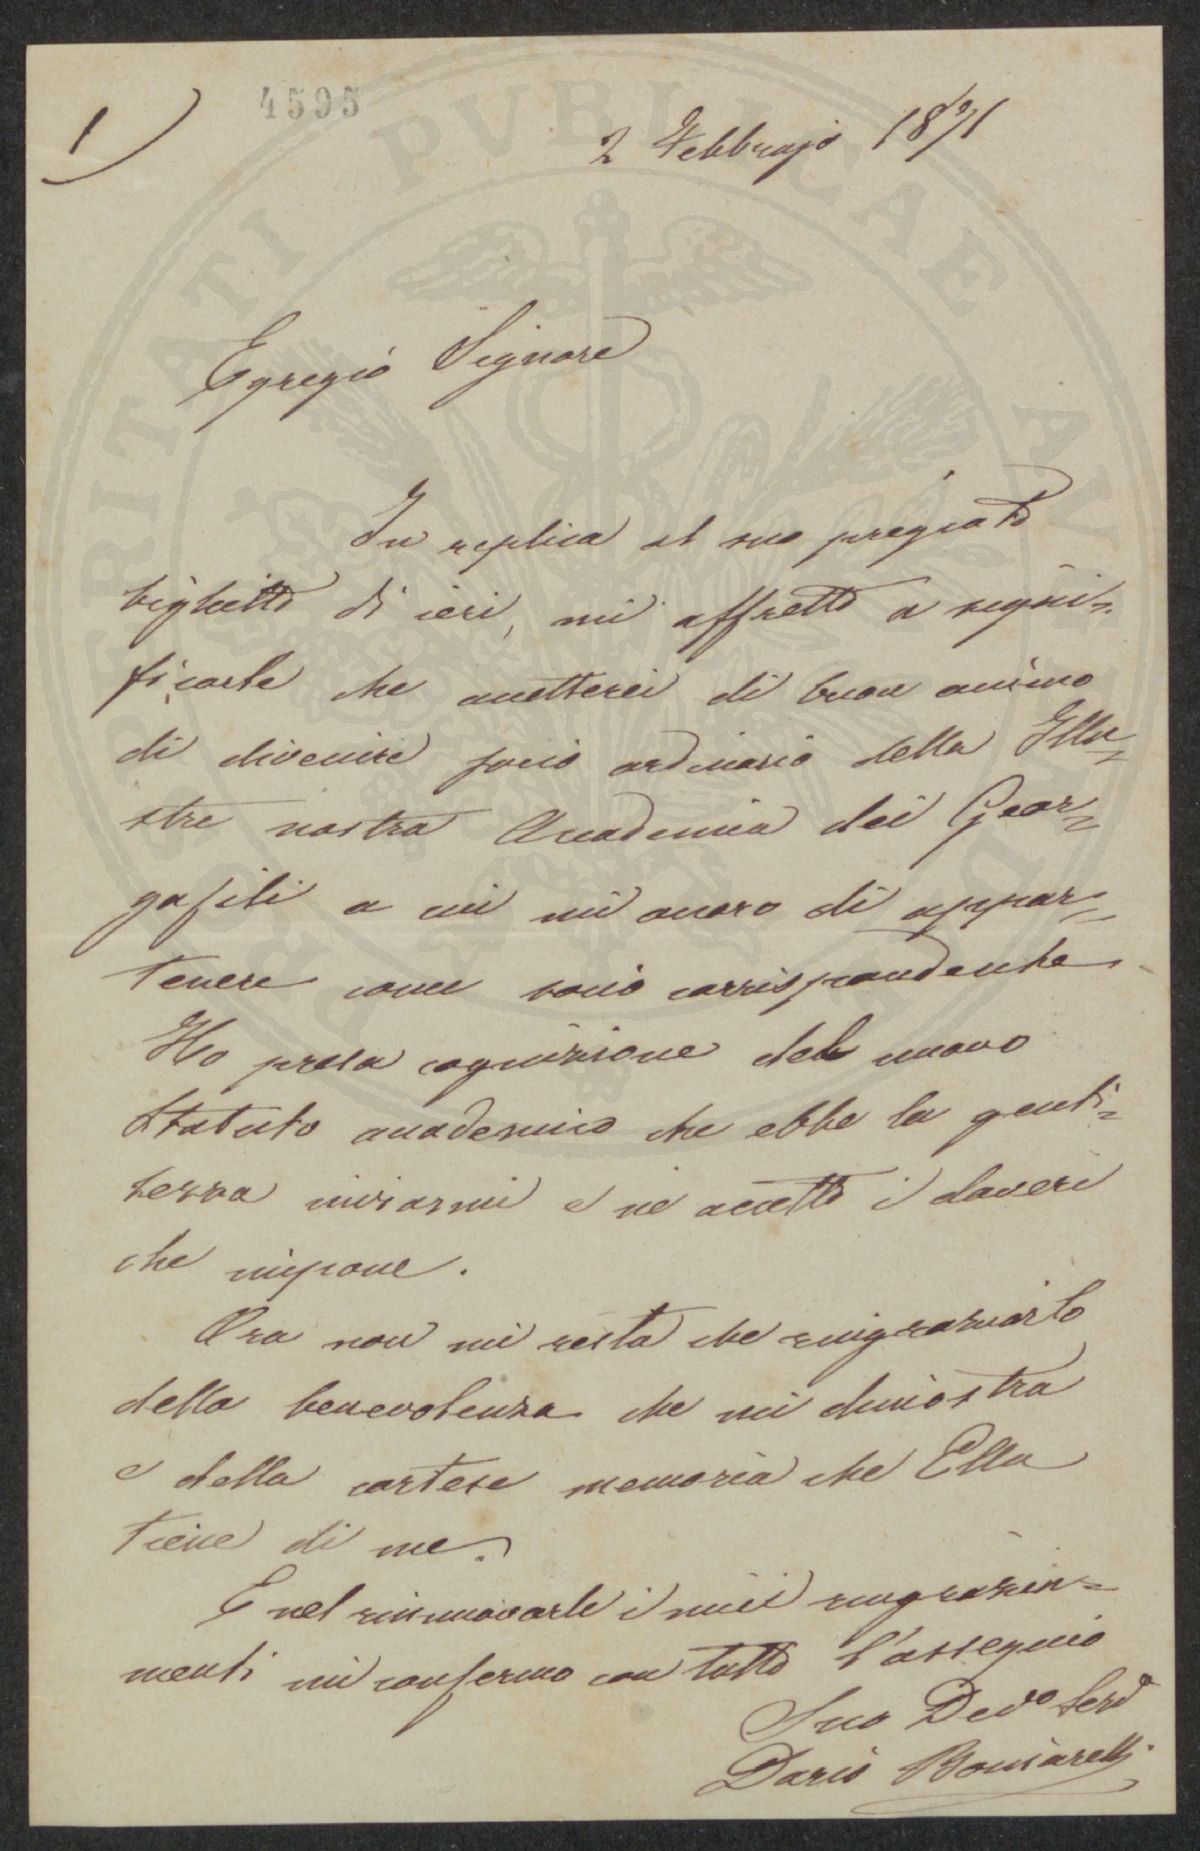 4595
1)
2 Febbrajo 1871
Egregio Signore
In replica al suo pregiato
biglietto di ieri, mi affretto a signi=
ficarle che accetterei di buon animo
di divenire socio ordinario della Illu=
stre nostra Accademia dei Geor=
gofili a cui mi onoro di appar=
tenere come socio corrispondente
Ho presa cognizione del nuovo
Statuto accademico che ebbe la genti=
lezza inviarmi e ne accetto i doveri
che impone.
Ora non mi resta che ringraziarlo
della benevolenza che mi dimostra
e della cortese memoria che Ella
tiene di me.
E nel rinnuovarle i miei ringrazia=
menti mi confermo con tutto l'ossequio
Suo Devo Serv
Dario
PROSPERITATI PUBLICAE AUGENDAE